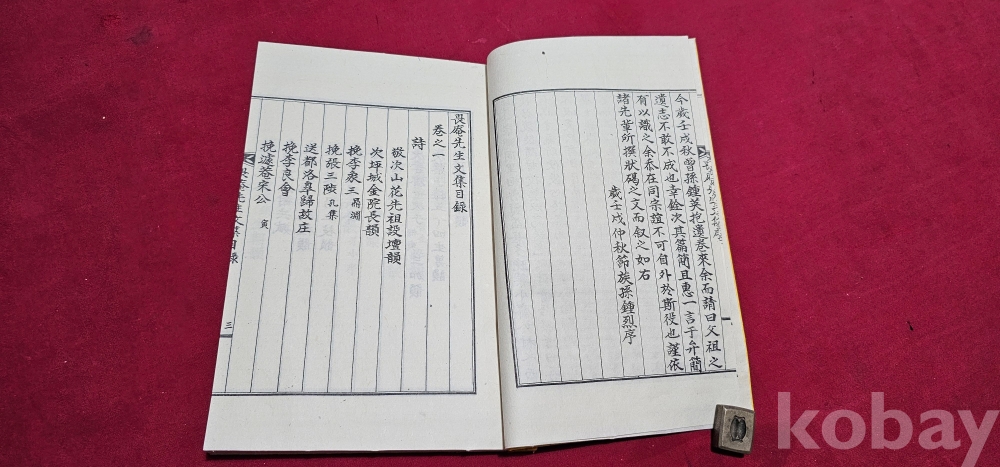 今歲壬戌秋曾孫鍾英抱遺卷來余而請曰父祖之
遺志不敢不成也幸銓次其篇簡且惠一言于弁簡
余忝在同宗誼不可自外於斯役也謹依
有以識之
諸先輩所撰狀碣之文而叙之如右
歲壬戌仲秋節族孫鍾烈序
畏庵先生文集目錄
卷之一
詩
敬次山花先祖設壇韻
次坪城金院長韻
挽李衆三 鼎淵
挽張三陟 孔集
送都洛臯歸故庄
挽李良會
挽遠菴宋公 寅
畏庵先生文集目錄
三
kobay